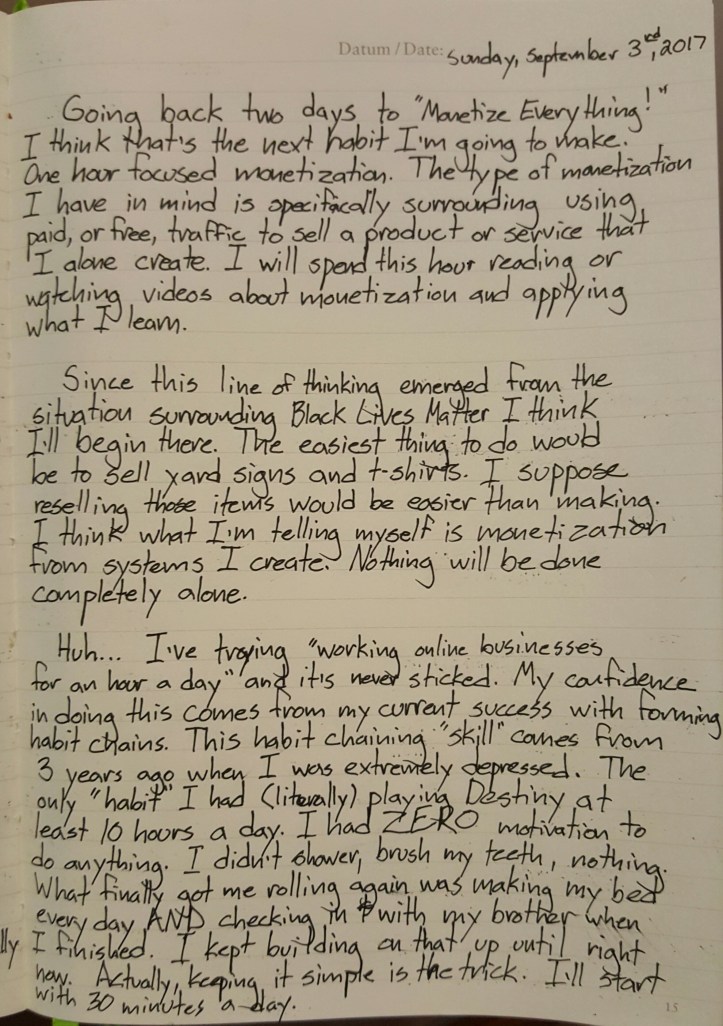 Datum / Date: Sunday, September 3rd, 2017
Going back two days to "Monetize Everything!"
I think that's the next habit I'm going to make.
One hour focused monetization. The type of monetization
I have in mind is specifacally surrounding using
paid, or free, traffic to sell a product or service that
I alone create. I will spend this hour reading or
watching videos about monetization and applying
what I learn.
Since this line of thinking emerged from the
situation surrounding Black Lives Matter I think
I'll begin there. The easiest thing to do would
be to sell yard signs and t-shirts. I suppose
reselling those items would be easier than making.
I think what I'm telling myself is monetization
from systems I create. Nothing will be done
completely alone.
Huh... I've trying "working online businesses
for an hour a day" and it is never sticked. My confidence
in doing this comes from my current success with forming
habit chains. This habit chaining "skill" comes from
3 years ago when I was extremely depressed. The
only "habit" I had (literally) playing Destiny at
least 10 hours a day. I had ZERO motivation to
do anything. I didn't shower, brush my teeth, nothing.
What finally got me rolling again was making my bed
every day AND checking in with my brother when
lly I finished. I kept building on that up until right
now. Actually, keeping it simple is the trick. I'll start
with 30 minutes a day.
15